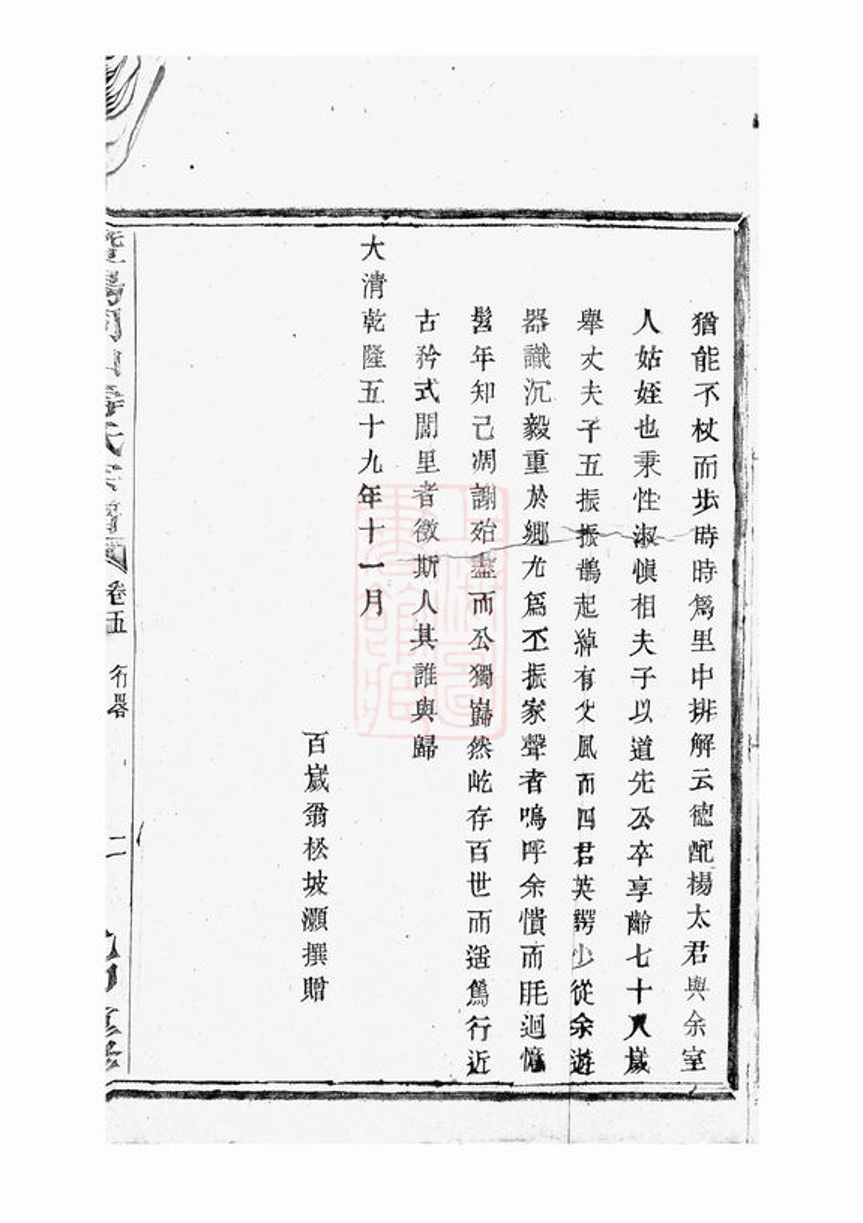 猶能不杖而步時時爲里中排解云德配楊太君與余室
人姑姪也秉性淑愼相夫子以道先公卒享齡七十八歲
舉丈夫子五振振鵲起綽有父風而四君英諤少從余遊
器識沉毅重於鄉尤爲丕振家聲者嗚呼余憒而眊迴憶
髫年知己凋謝殆盡而公獨巋然屹存百世而遥篤行近
古矜式閭里者微斯人其誰與歸
大清乾隆五十九年十一月
百歲翁松坡灝撰贈
氏宗譜
卷五
行畧
二
上海圖
書館藏